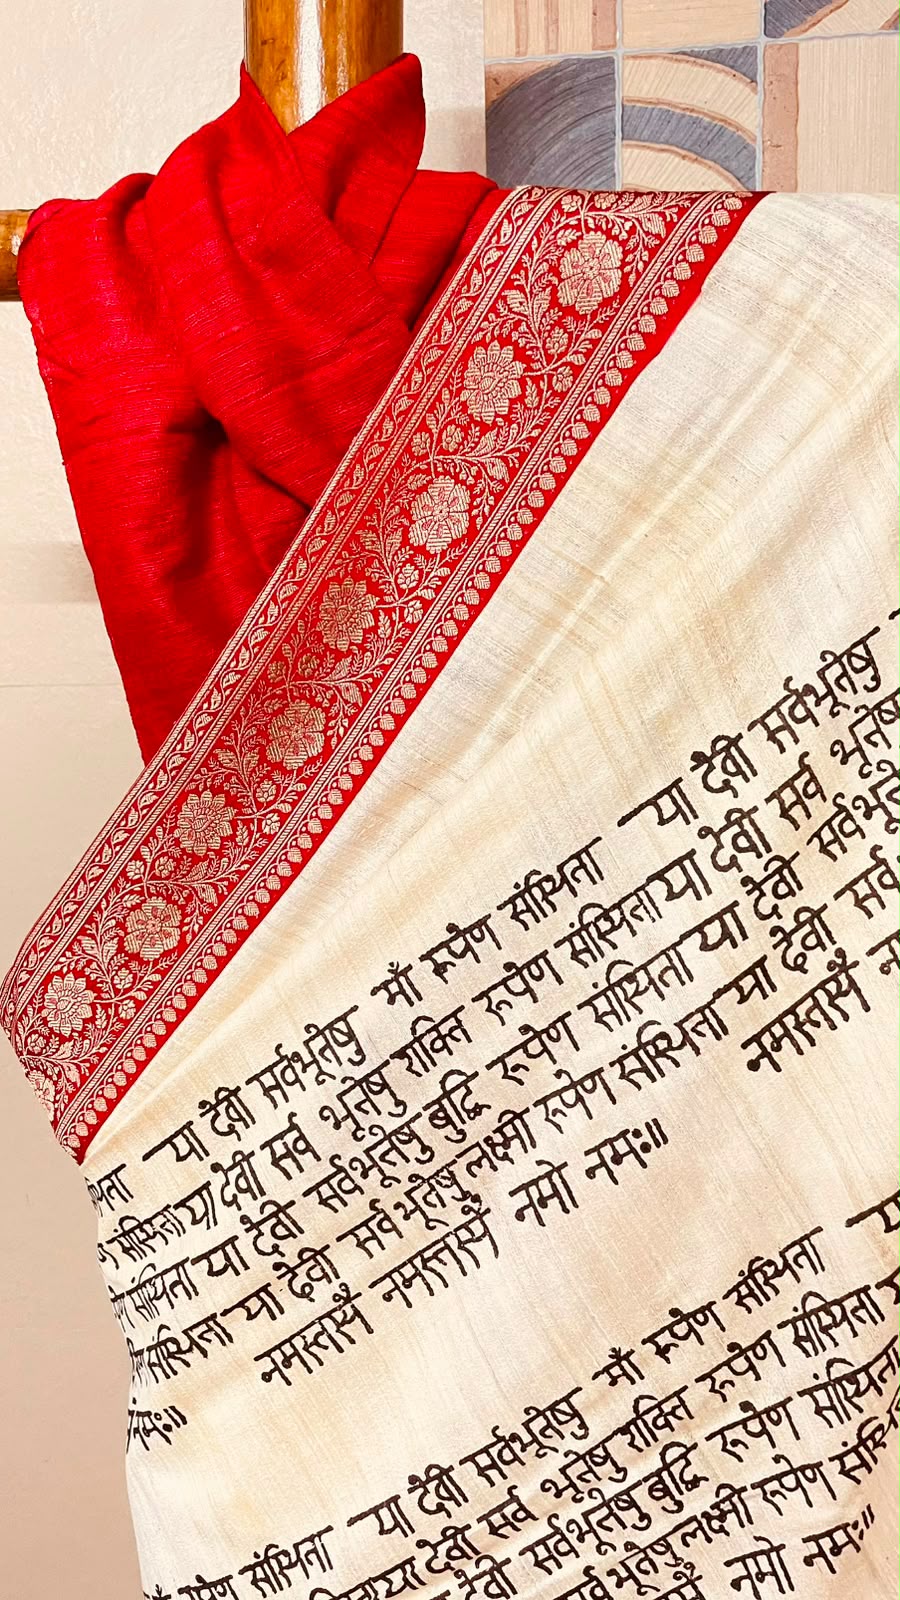 या देवी सर्वभूतेषु माँ रूपेण संस्थिता या देवी सर्वभूतेषु
संस्थिता या देवी सर्व भूतेषु शक्ति रूपेण संस्थिता या देवी सर्व भूतेषु
संस्थिता या देवी सर्वभूतेषु बुद्धि रूपेण संस्थिता या देवी सर्वभूतेषु
संस्थिता या देवी सर्व भूतेषु लक्ष्मी रूपेण संस्थिता या देवी
नमः॥ नमस्तस्यै नमस्तस्यै नमो नमः॥ नमस्तस्यै
रूपेण संस्थिता या देवी सर्वभूतेषु माँ रूपेण संस्थिता
या देवी सर्व भूतेषु शक्ति रूपेण संस्थिता
देवी सर्वभूतेषु बुद्धि रूपेण संस्थिता
भूतेषु लक्ष्मी रूपेण
नमो नमः॥